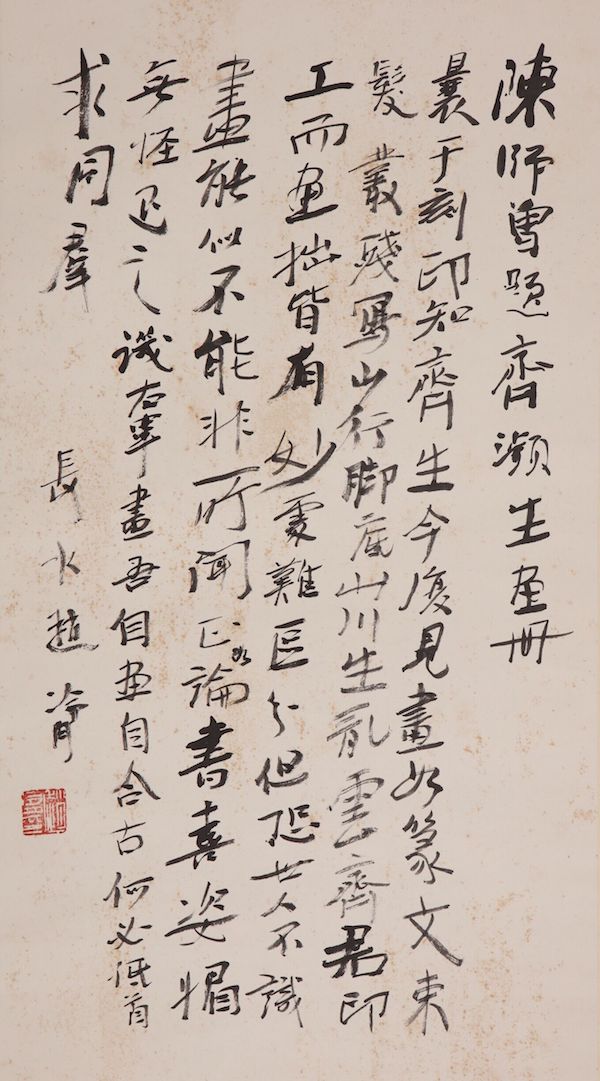 陳師曾題齊瀕生画册
曩于刻印知齊生今復見畫如篆文束
髮叢殘寫山行脚底山川生亂雲齊君印
工而画拙皆有妙處難區分但恐世人不識
畫能似不能非所聞正如論書喜姿媚
無怪退之譏右軍畫吾自画自合古何必低首
求同羣
長水趙冷月